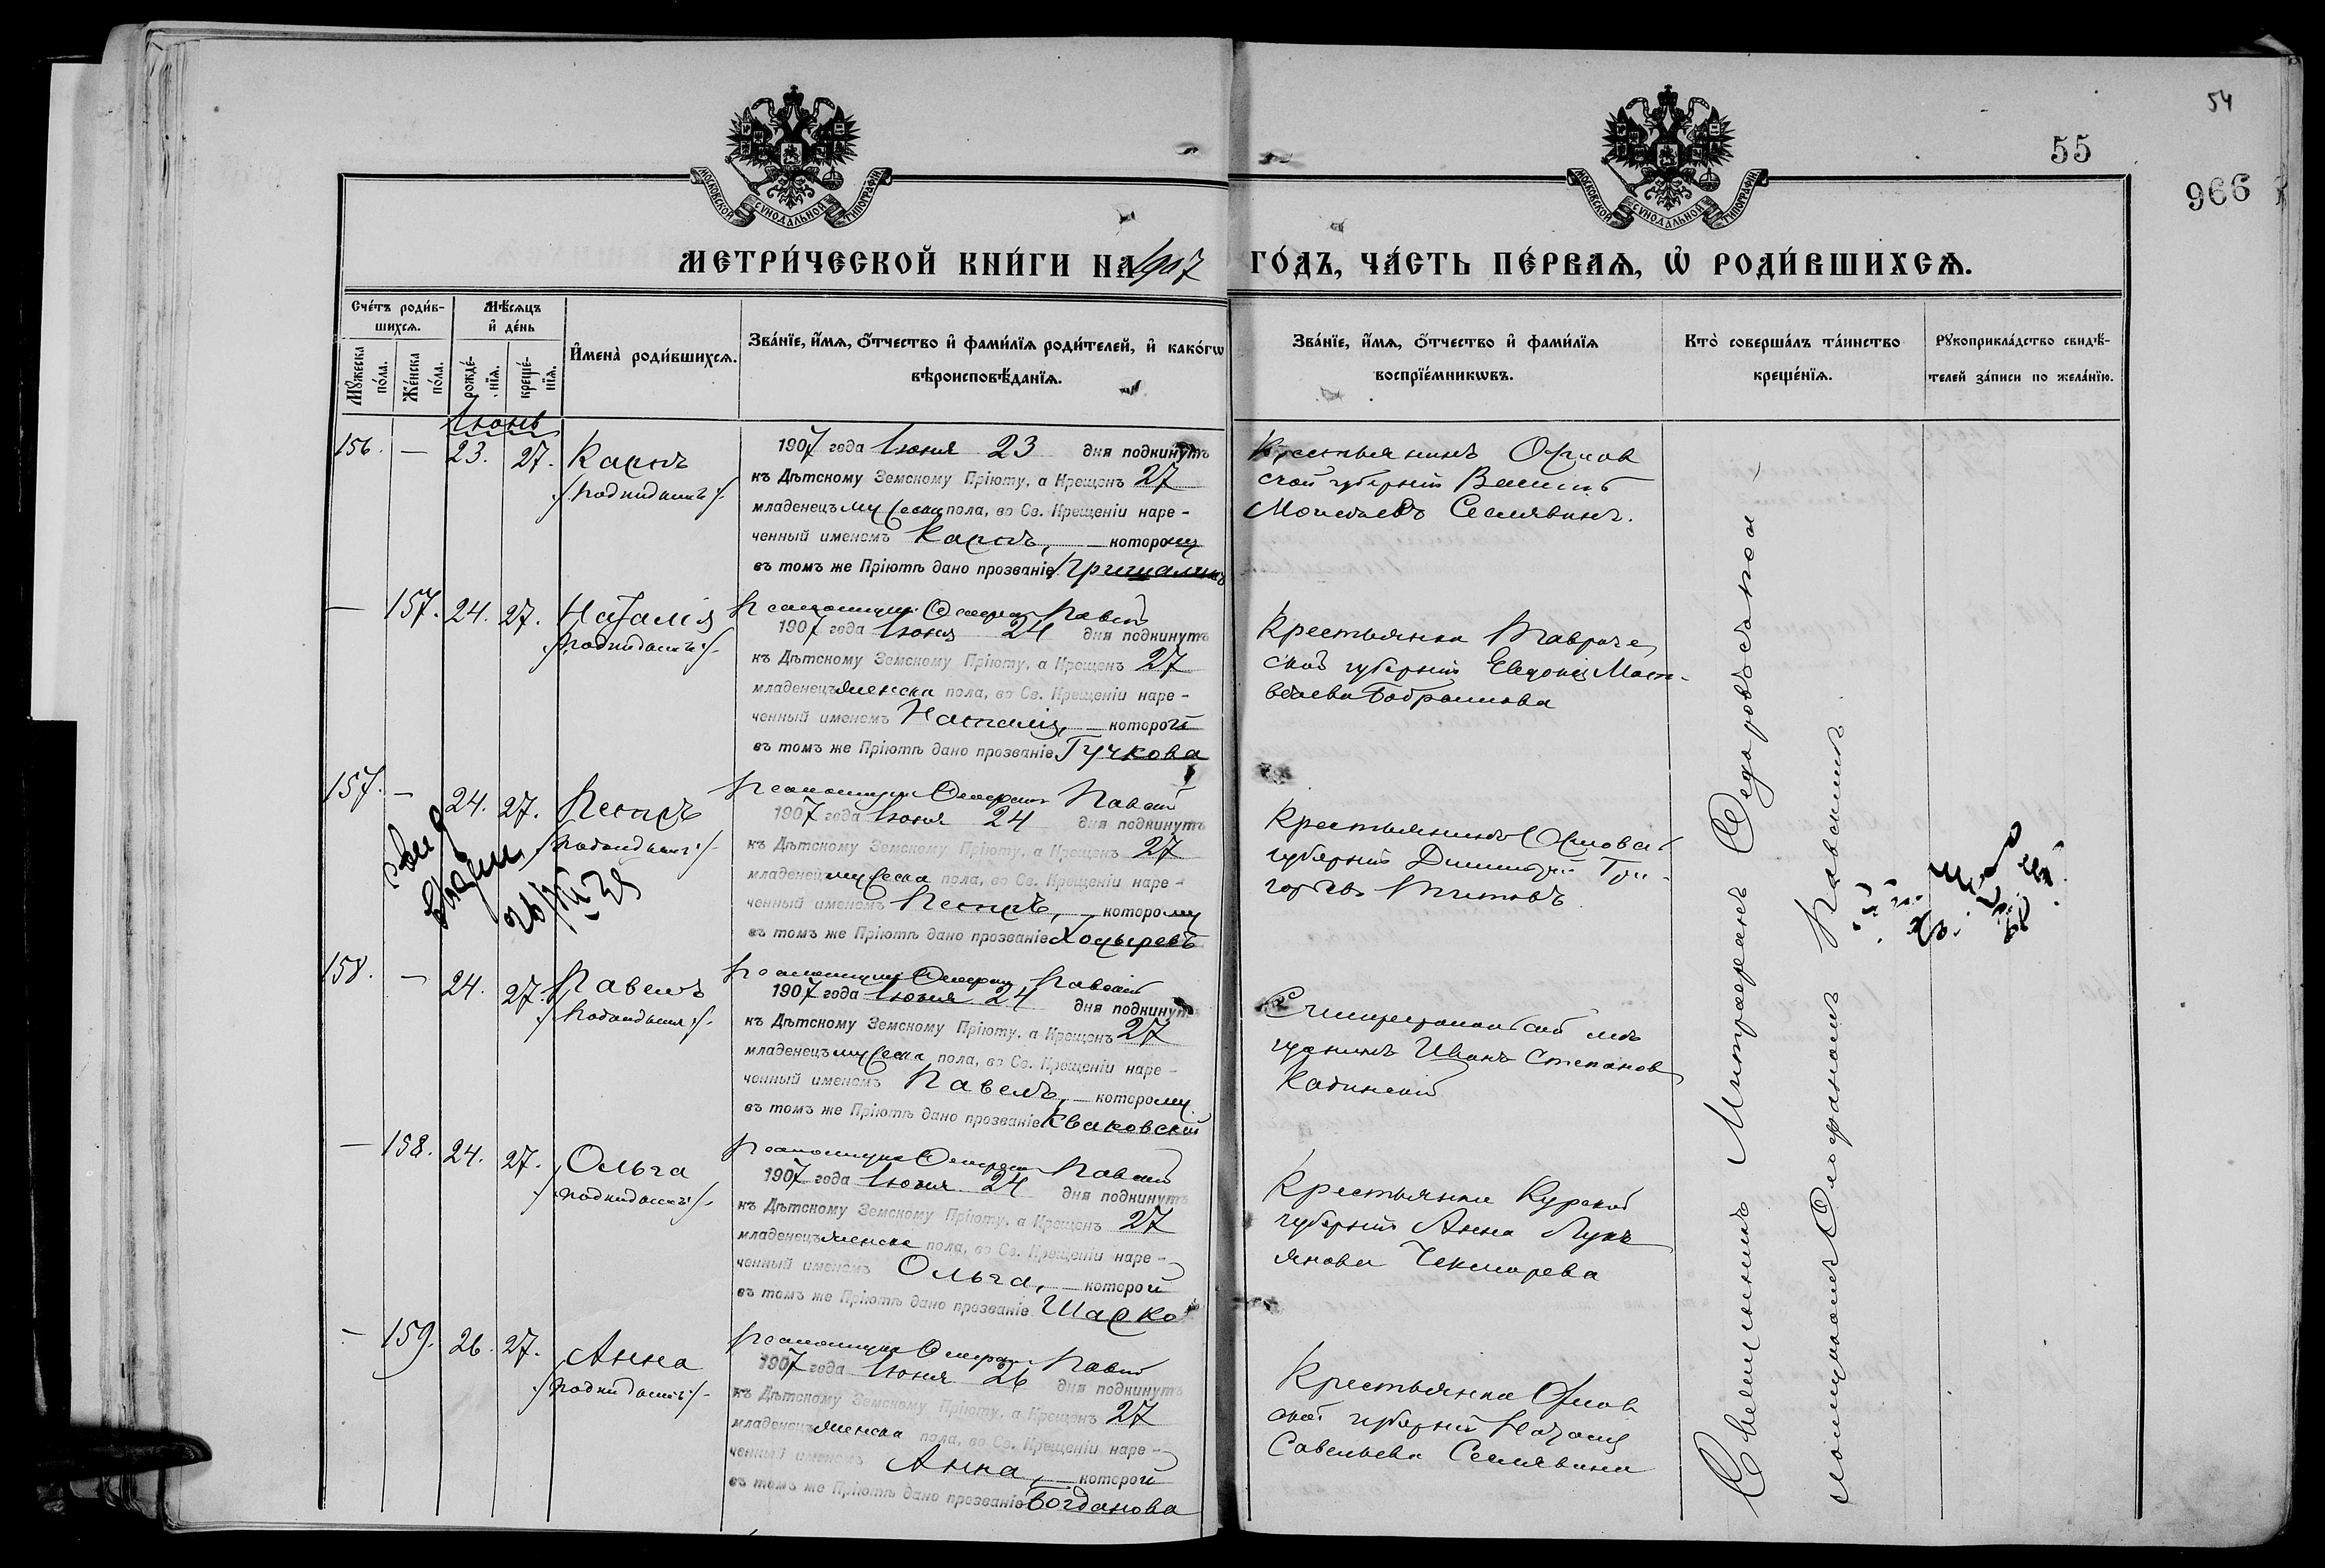 54
55
966
МОСКОВСКОЙ СѴНОДАЛЬНОЙ ТИПОГРАФІИ
МОСКОВСКОЙ СѴНОДАЛЬНОЙ ТИПОГРАФІИ
МЕТРИ́ЧЕСКОЙ КНИ́ГИ НА 1907 ГО́ДЪ, ЧА́СТЬ ПЕ́РВАѦ, Ѡ҆ РОДИ́ВШИХСѦ.
Сче́тъ роди́в-
шихсѧ.
Мꙋ́жеска по́ла.
Же́нска по́ла.
Мѣ́сѧцъ
и҆ де́нь
рожде́-нїѧ.
креще́-нїѧ.
И҆мена̀ роди́вшихсѧ.
Зва́нїе, и҆́мѧ, ѻ҆́тчество и҆ фами́лїѧ роди́телей, и҆ како́гѡ
вѣроисповѣ́данїѧ.
Зва́нїе, и҆́мѧ, ѻ҆́тчество и҆ фами́лїѧ
воспрїе́мникѡвъ.
Кто̀ соверша́лъ та́инство
креще́нїѧ.
Рꙋкоприкла́дство свидѣ́-
телей за́писи по жела́нїю.
Іюнь
156. — 23. 27. Карпъ
/:подкидышъ:/.
1907 года Іюня 23 дня подкинутъ
къ Дѣтскому Земскому Пріюту, а Крещенъ 27
младенецъ мужеска пола, во Св. Крещеніи наре-
ченный именемъ Карпъ, — которому
въ томъ же Пріютѣ дано прозваніе
Крестьянинъ Орлов
ской губерніи Василій
Моисеевъ Селявинъ.
— 157. 24. 27. Наталія
/:подкидышъ:/.
1907 года Іюня 24 дня подкинутъ
къ Дѣтскому Земскому Пріюту, а Крещенъ 27
младенецъ женска пола, во Св. Крещеніи наре-
ченный именемъ Наталія, — которой
въ томъ же Пріютѣ дано прозваніе Гучкова
Крестьянка Тавриче
ской губерніи Евдокія Мат-
вѣева
157. — 24. 27. Петръ
/:подкидышъ:/.
1907 года Іюня 24 дня подкинутъ
къ Дѣтскому Земскому Пріюту, а Крещенъ 27
младенецъ мужеска пола, во Св. Крещеніи наре-
ченный именемъ Петръ, — которому
въ томъ же Пріютѣ дано прозваніе
Крестьянинъ Орловск
губерніи Димитрій Гри-
горьевъ Титовъ
158. — 24. 27. Павелъ
/:подкидышъ:/.
1907 года Іюня 24 дня подкинутъ
къ Дѣтскому Земскому Пріюту, а Крещенъ 27
младенецъ мужеска пола, во Св. Крещеніи наре-
ченный именемъ Павелъ, — которому
въ томъ же Пріютѣ дано прозваніе Кваковскій
Симферопольскій мѣ
щанинъ Иванъ Степановъ
— 158. 24. 27. Ольга
/:подкидышъ:/.
1907 года Іюня 24 дня подкинутъ
къ Дѣтскому Земскому Пріюту, а Крещенъ 27
младенецъ женска пола, во Св. Крещеніи наре-
ченный именемъ Ольга, — которой
въ томъ же Пріютѣ дано прозваніе
Крестьянка Курской
губерніи Анна Лукь
янова Чекмарева
— 159. 26. 27. Анна
/:подкидышъ:/.
1907 года Іюня 26 дня подкинутъ
къ Дѣтскому Земскому Пріюту, а Крещенъ 27
младенецъ женска пола, во Св. Крещеніи наре-
ченный именемъ Анна, — которой
въ томъ же Пріютѣ дано прозваніе Богданова
Крестьянка Орлов
ской губерніи Наталія
Савельева Селявина
Священникъ Митрофанъ